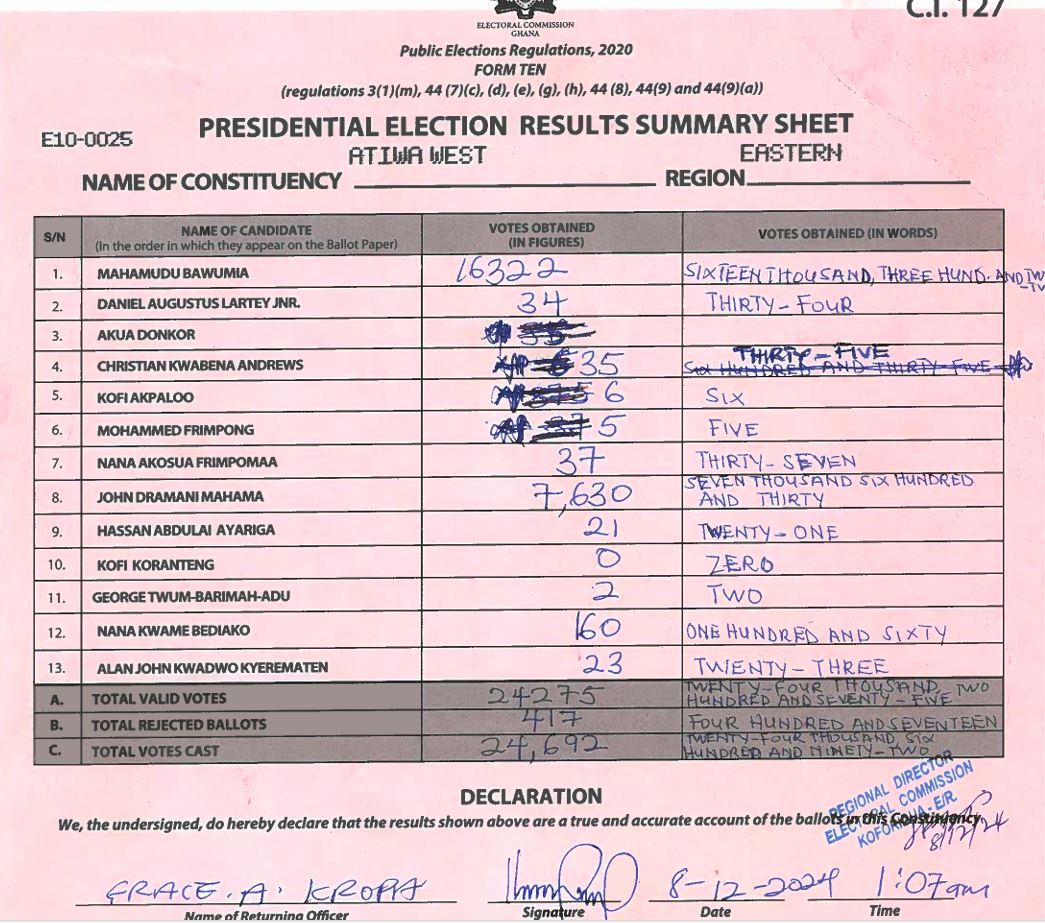 C.I. 127
ELECTORAL COMMISSION
GHANA
Public Elections Regulations, 2020
FORM TEN
(regulations 3(1)(m), 44 (7)(c), (d), (e), (g), (h), 44 (8), 44(9) and 44(9)(a))
E10-0025
PRESIDENTIAL ELECTION RESULTS SUMMARY SHEET
ATIWA WEST EASTERN
NAME OF CONSTITUENCY REGION
S/N NAME OF CANDIDATE (In the order in which they appear on the Ballot Paper) VOTES OBTAINED (IN FIGURES) VOTES OBTAINED (IN WORDS)
1. MAHAMUDU BAWUMIA 16322 SIXTEEN THOUSAND, THREE HUND. AND
2. DANIEL AUGUSTUS LARTEY JNR. 34 THIRTY-FOUR
3. AKUA DONKOR
4. CHRISTIAN KWABENA ANDREWS 35 THIRTY-FIVE
SIX HUNDRED AND THIRTY-FIVE
5. KOFI AKPALOO 6 SIX
6. MOHAMMED FRIMPONG 5 FIVE
7. NANA AKOSUA FRIMPOMAA 37 THIRTY-SEVEN
8. JOHN DRAMANI MAHAMA 7,630 SEVEN THOUSAND SIX HUNDRED
AND THIRTY
9. HASSAN ABDULAI AYARIGA 21 TWENTY-ONE
10. KOFI KORANTENG 0 ZERO
11. GEORGE TWUM-BARIMAH-ADU 2 TWO
12. NANA KWAME BEDIAKO 160 ONE HUNDRED AND SIXTY
13. ALAN JOHN KWADWO KYEREMATEN 23 TWENTY-THREE
A. TOTAL VALID VOTES 24275 TWENTY-FOUR THOUSAND, TWO
HUNDRED AND SEVENTY-FIVE
B. TOTAL REJECTED BALLOTS 417 FOUR HUNDRED AND SEVENTEEN
C. TOTAL VOTES CAST 24,692 TWENTY-FOUR THOUSAND SIX
HUNDRED AND NINETY-TWO
DECLARATION
We, the undersigned, do hereby declare that the results shown above are a true and accurate account of the ballots in this Constituency
REGIONAL DIRECTOR
ELECTORAL COMMISSION
KOFORIDUA - E/R
8/12/24
GRACE. A. KROPA 8-12-2024 1:07am
Name of Returning Officer Signature Date Time